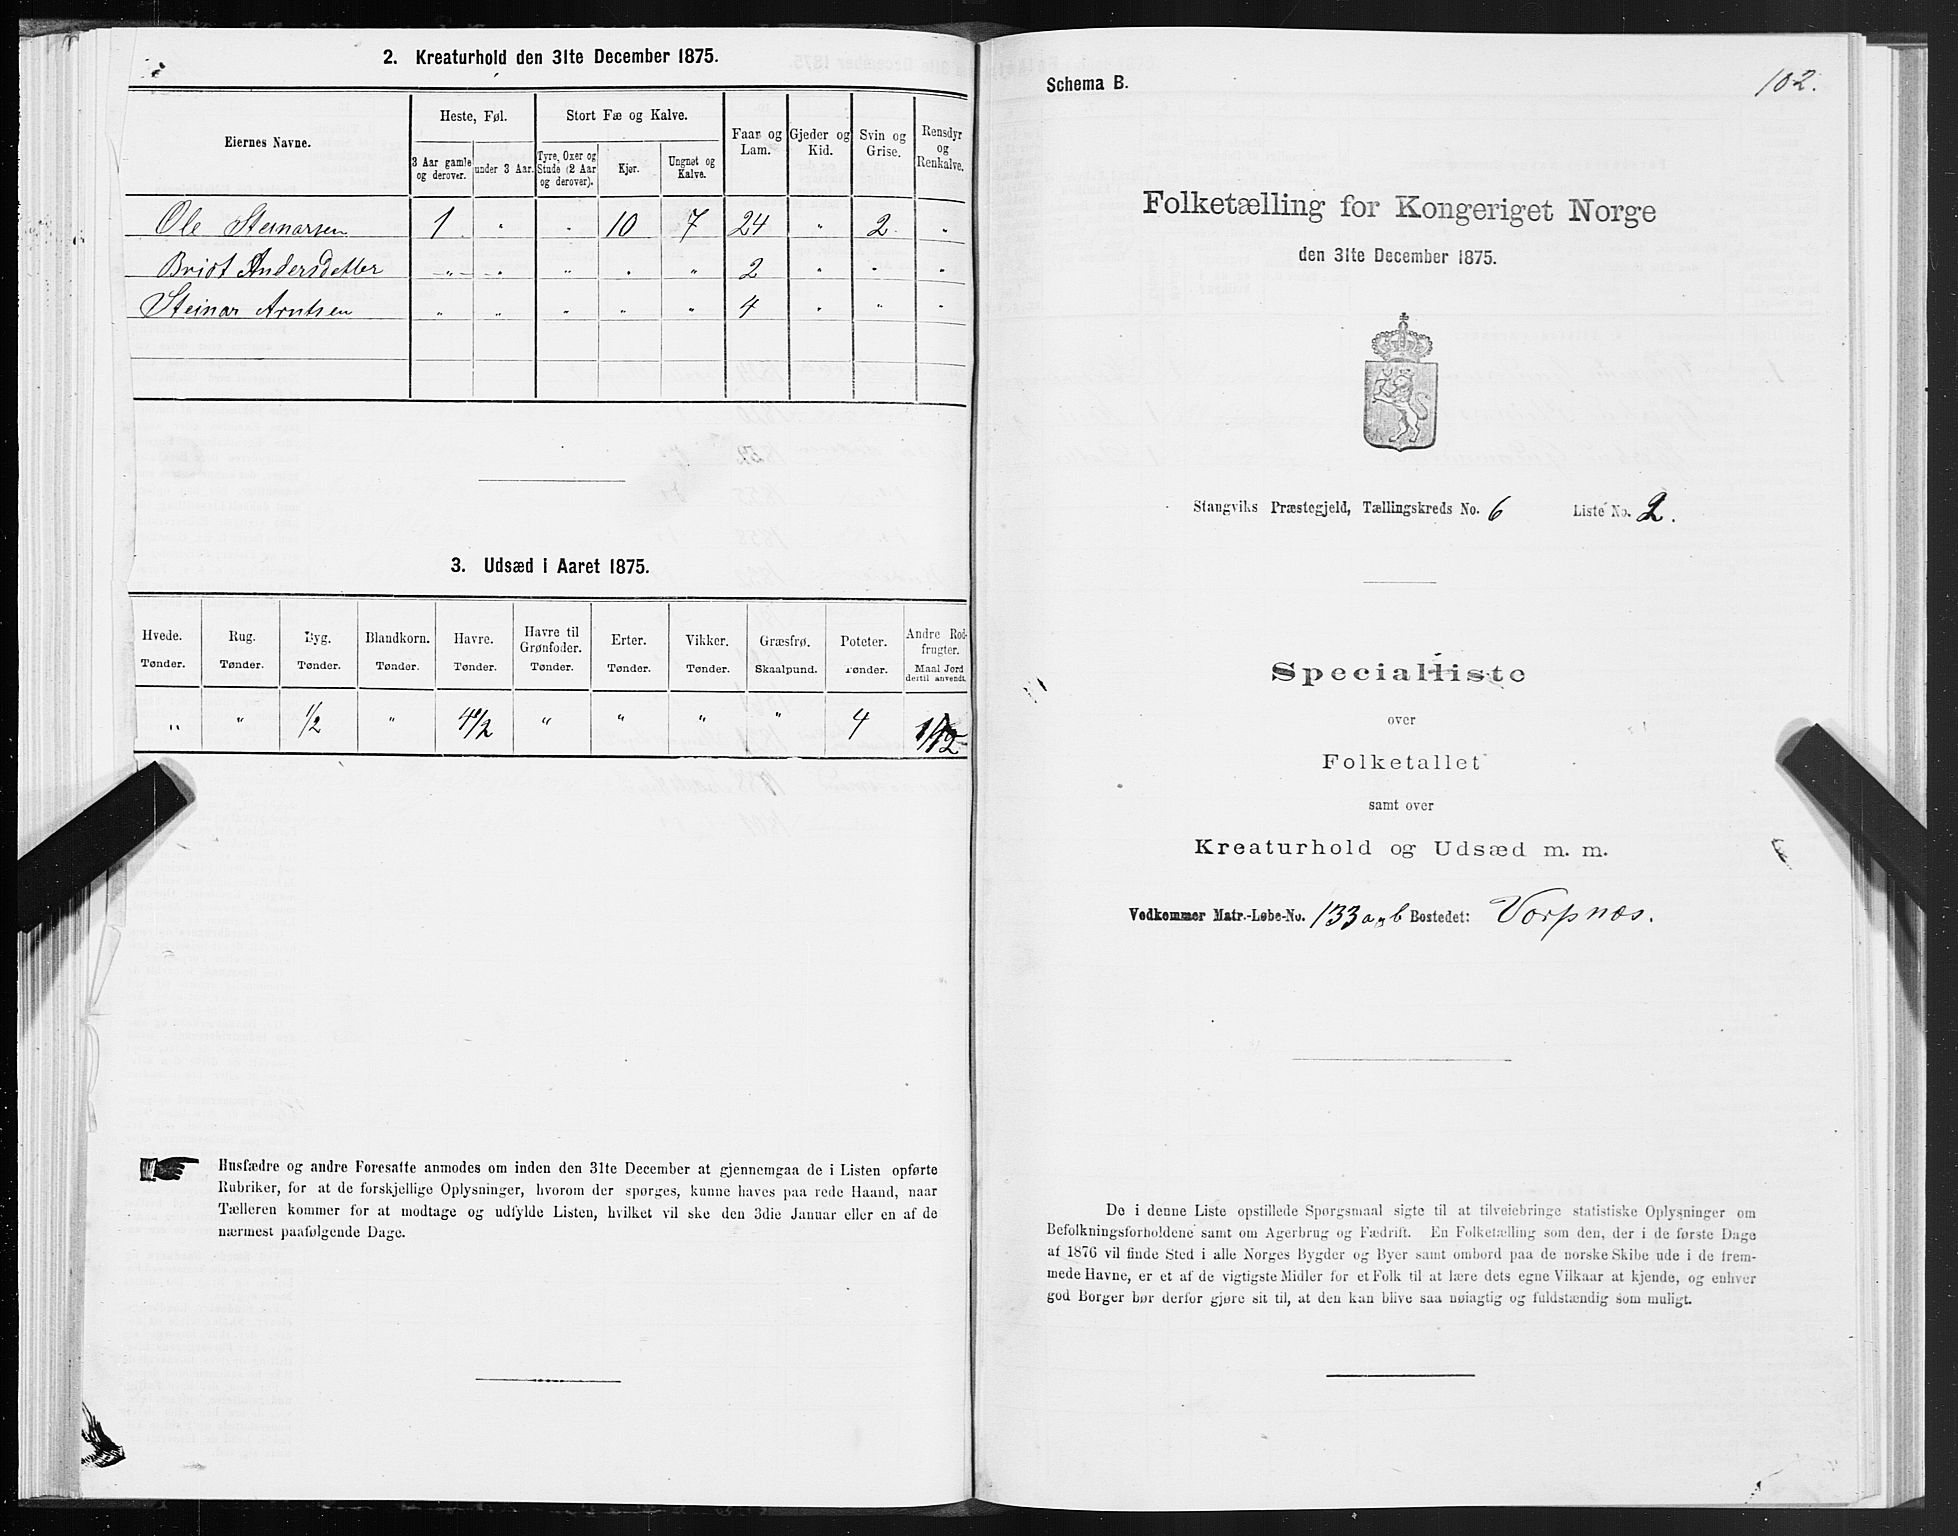 2. Kreaturhold den 31te December 1875.
Eiernes Navne.
Heste, Føl.
3 Aar gamle og derover.
under 3 Aar.
Stort Fæ og Kalve.
Tyre, Oxer og Stude (2 Aar og derover).
Kjør.
Ungnøt og Kalve.
Faar og Lam.
Gjeder og Kid.
Svin og Grise.
Rensdyr og Renkalve.
Ole Steinarsen 1 " " 10 7 24 " 2 "
Briot Andersdatter " " " " " 2 " " "
Steinar Arntsen " " " " " 4 " " "
3. Udsæd i Aaret 1875.
Hvede. Rug. Byg. Blandkorn. Havre. Havre til Grønfoder. Erter. Vikker. Græsfrø. Poteter. Andre Rodfrugter.
Tønder. Tønder. Tønder. Tønder. Tønder. Tønder. Tønder. Tønder. Skaalpund. Tønder. Maal Jord dertil anvendt.
" " 1/2 " 4 1/2 " " " " 4
Husfædre og andre Foresatte anmodes om inden den 31te December at gjennemgaa de i Listen opførte
Rubriker, for at de forskjellige Oplysninger, hvorom der spørges, kunne haves paa rede Haand, naar
Tælleren kommer for at modtage og udfylde Listen, hvilket vil ske den 3die Januar eller en af de
nærmest paafølgende Dage.
Schema B.
102.
Folketælling for Kongeriget Norge
den 31te December 1875.
Stangviks Præstegjeld, Tællingskreds No. 6 Liste No. 2.
Specialliste
over
Folketallet
samt over
Kreaturhold og Udsæd m. m.
Vedkommer Matr.-Løbe-No. 133 a og b Bostedet: Vorpnæs.
De i denne Liste opstillede Spørgsmaal sigte til at tilveiebringe statistiske Oplysninger om
Befolkningsforholdene samt om Agerbrug og Fædrift. En Folketælling som den, der i de første Dage
af 1876 vil finde Sted i alle Norges Bygder og Byer samt ombord paa de norske Skibe ude i de frem-
mede Havne, er et af de vigtigste Midler for et Folk til at lære dets egne Vilkaar at kjende, og enhver
god Borger bør derfor gjøre sit til, at den kan blive saa nøiagtig og fuldstændig som muligt.